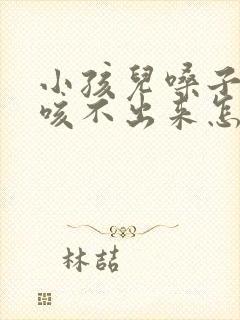 小孩兒嗓子
咳不出来怎
林喆